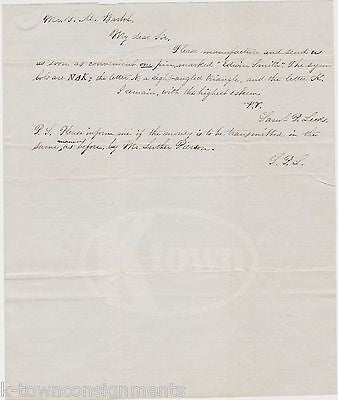 Mr. S. M.
My dear Sir,
Please manufacture and send us
as soon as convenient one pin, marked "Edwin Smith". The sym-
bols are N∆K; the letter N, a right-angled triangle, and the letter K.
I remain, with the highest esteem
Saml. P. Leeds.
P.S. Please inform me if the money is to be transmitted in the
same manner, as before, by Mr. Luther Pierson.
S. P. L.
K-town
k-townconsignments